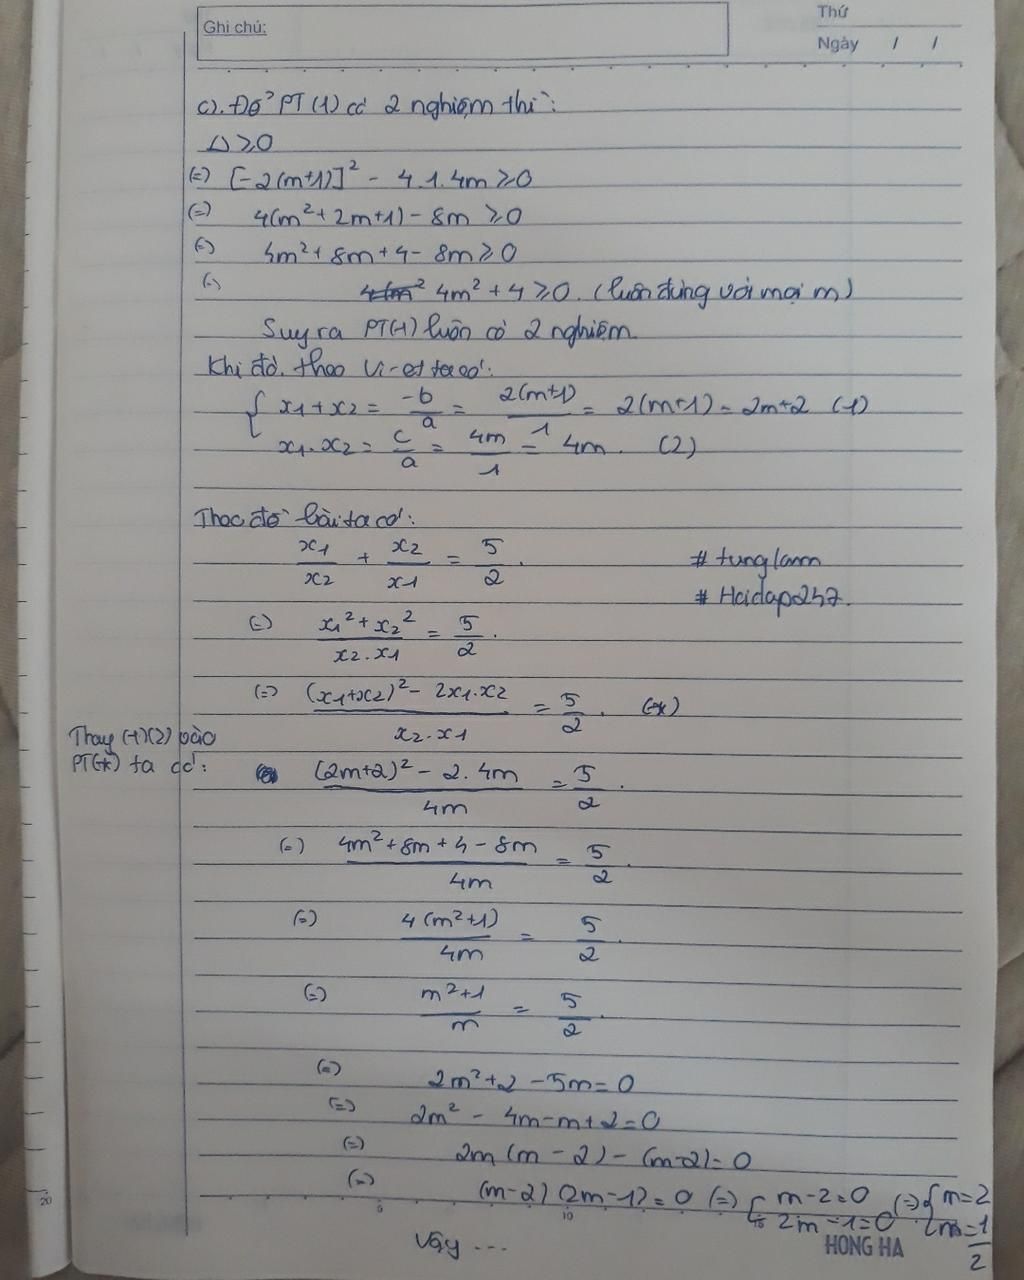 Ghi chú:
Thứ
Ngày / /
c). Để PT (1) có 2 nghiệm thì:
Δ ≥ 0
(=) [-2(m+1)]² - 4.1.4m ≥ 0
(=) 4(m² + 2m + 1) - 8m ≥ 0
(=) 4m² + 8m + 4 - 8m ≥ 0
(=) 4m² + 4 ≥ 0. (luôn đúng với mọi m)
Suy ra PT(1) luôn có 2 nghiệm
Khi đó. theo Vi-et ta có:
{ x1 + x2 = -b/a = 2(m+1)/1 = 2(m+1) = 2m+2 (1)
x1.x2 = c/a = 4m/1 = 4m. (2)
Theo đề bài ta có:
x1/x2 + x2/x1 = 5/2.
# tunglam
# Hoidap247.
(=) (x1² + x2²)/(x2.x1) = 5/2.
(=) ((x1+x2)² - 2x1.x2)/(x2.x1) = 5/2. (*)
Thay (1)(2) vào
PT(*) ta có:
((2m+2)² - 2.4m)/4m = 5/2.
(=) (4m² + 8m + 4 - 8m)/4m = 5/2.
(=) 4(m²+1)/4m = 5/2.
(=) (m²+1)/m = 5/2.
(=) 2m² + 2 - 5m = 0
(=) 2m² - 4m - m + 2 = 0
(=) 2m(m - 2) - (m-2) = 0
(=) (m-2)(2m-1) = 0 (=) [ m-2=0 (=) { m=2
2m-1=0 m=1/2
Vậy ...
20
5 10 15
HONG HA